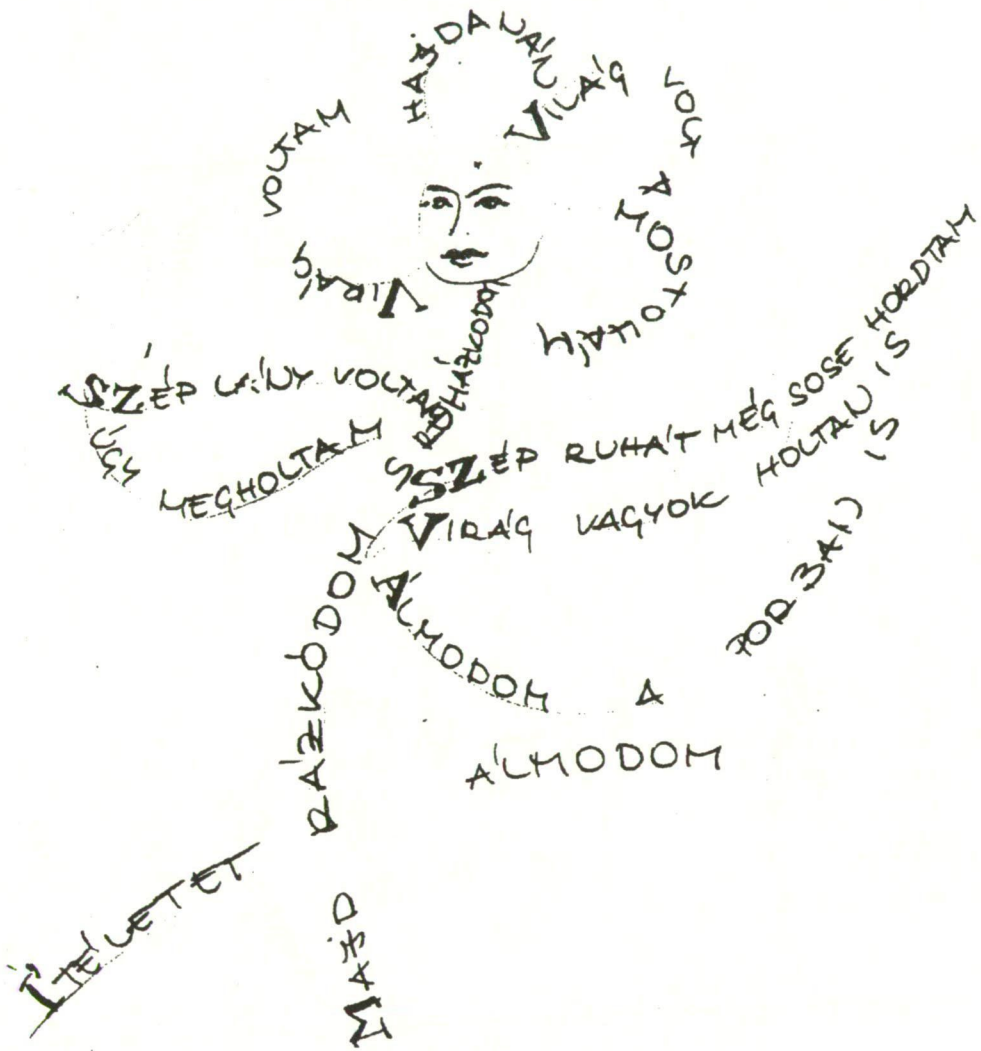 VIRÁG VOLTAM HAJDANÁN
VILÁG VOLT A MOSTOHÁM
SZÉP LÁNY VOLTAM
ÚGY MEGHOLTAM
SZÉP RUHÁT MÉG SOSE HORDTAM
VIRÁG VAGYOK HOLTAN IS
ÁLMODOM A PORBAN IS
ÁLMODOM
S RUHÁZKODOM
MAJD RÁZKÓDOM
ÍTÉLETET